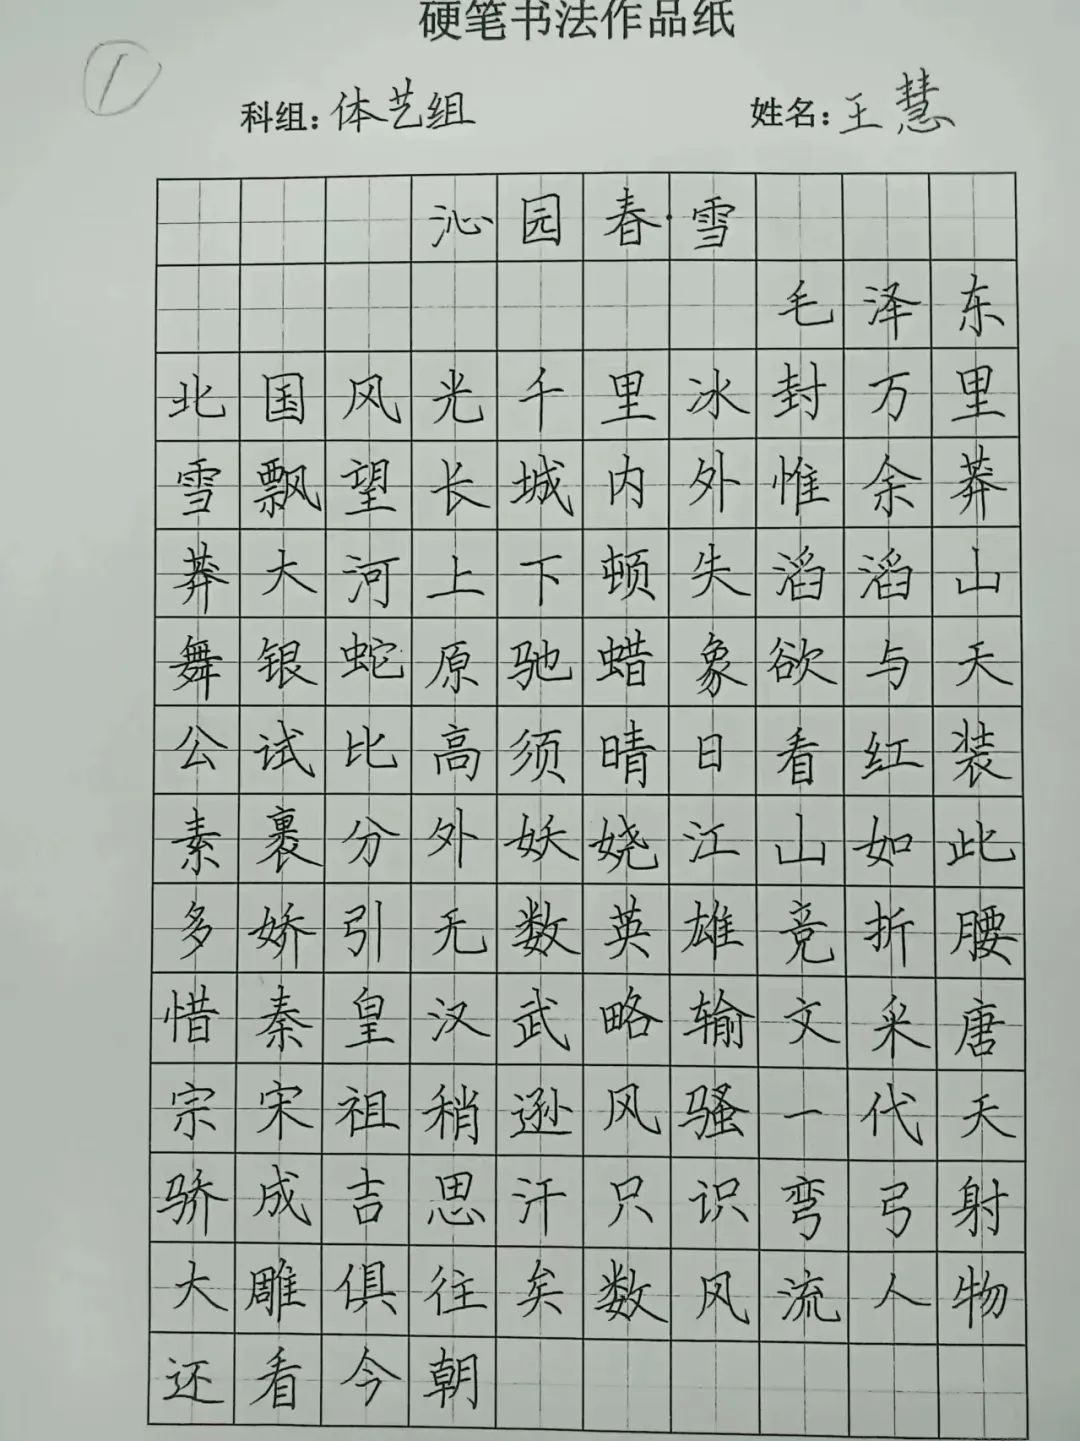 硬笔书法作品纸
①
科组:体艺组 姓名:王慧
沁园春·雪
毛泽东
北国风光千里冰封万里
雪飘望长城内外惟余莽
莽大河上下顿失滔滔山
舞银蛇原驰蜡象欲与天
公试比高须晴日看红装
素裹分外妖娆江山如此
多娇引无数英雄竞折腰
惜秦皇汉武略输文采唐
宗宋祖稍逊风骚一代天
骄成吉思汗只识弯弓射
大雕俱往矣数风流人物
还看今朝